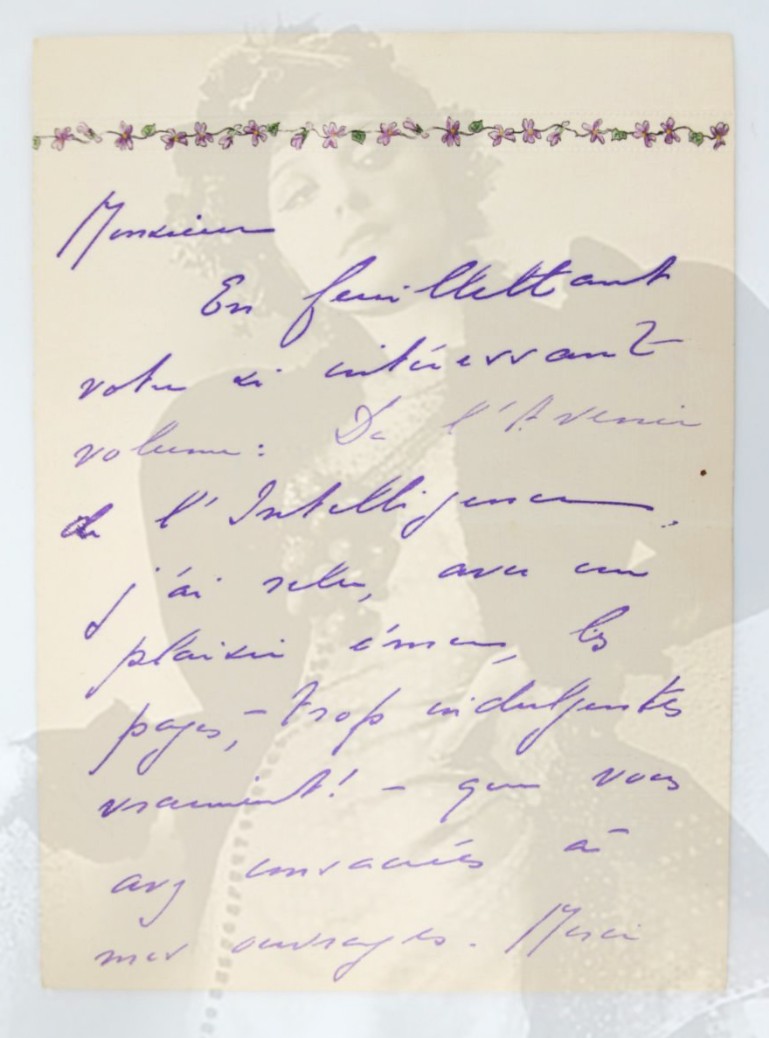 Monsieur
En feuillettant
votre si intéressant
volume: De l'Avenir
de l'Intelligence,
j'ai relu, avec un
plaisir ému, les
pages, – trop indulgentes
vraiment! – que vous
avez consacrées à
mes ouvrages. Merci